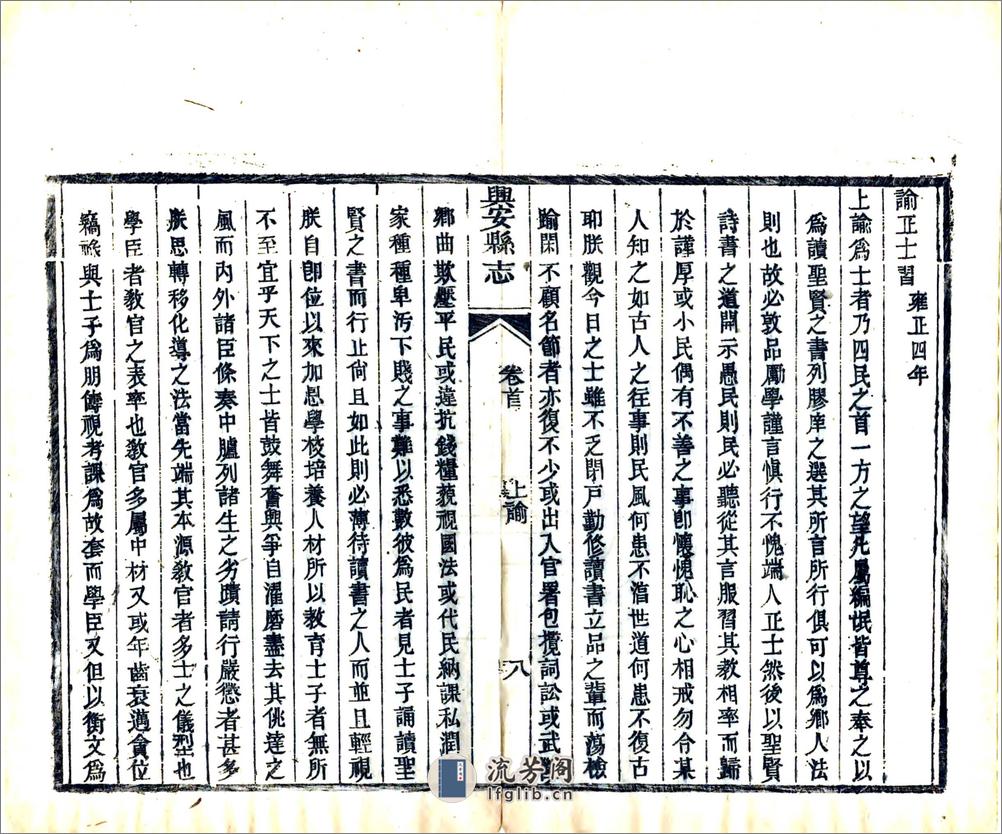 諭正士習 雍正四年
上諭爲士者乃四民之首一方之望凡屬編氓皆尊之奉之以
爲讀聖賢之書列膠庠之選其所言所行俱可以爲鄉人法
則也故必敦品勵學謹言愼行不愧端人正士然後以聖賢
詩書之道開示愚民則民必聽從其言服習其教相率而歸
於謹厚或小民偶有不善之事卽懷愧恥之心相戒勿令某
人知之如古人之往事則民風何患不湻世道何患不復古
耶朕觀今日之士雖不乏閉戸勤修讀書立品之輩而蕩檢
踰閑不顧名節者亦復不少或出入官署包攬詞訟或武斷
興安縣志 卷首 上諭 八
鄉曲欺壓平民或違抗錢糧藐視國法或代民納課私潤
家種種卑汚下賤之事難以悉數彼爲民者見士子誦讀聖
賢之書而行止尙且如此則必薄待讀書之人而並且輕視
朕自卽位以來加恩學校培養人材所以教育士子者無所
不至宜乎天下之士皆鼓舞奮興爭自濯磨盡去其佻達之
風而内外諸臣條奏中臚列諸生之劣蹟請行嚴懲者甚多
朕思轉移化導之法當先端其本源教官者多士之儀型也
學臣者教官之表率也教官多屬中材又或年齒衰邁貪位
竊祿與士子爲朋儔視考課爲故套而學臣又但以衡文爲
流芳阁
lfglib.cn